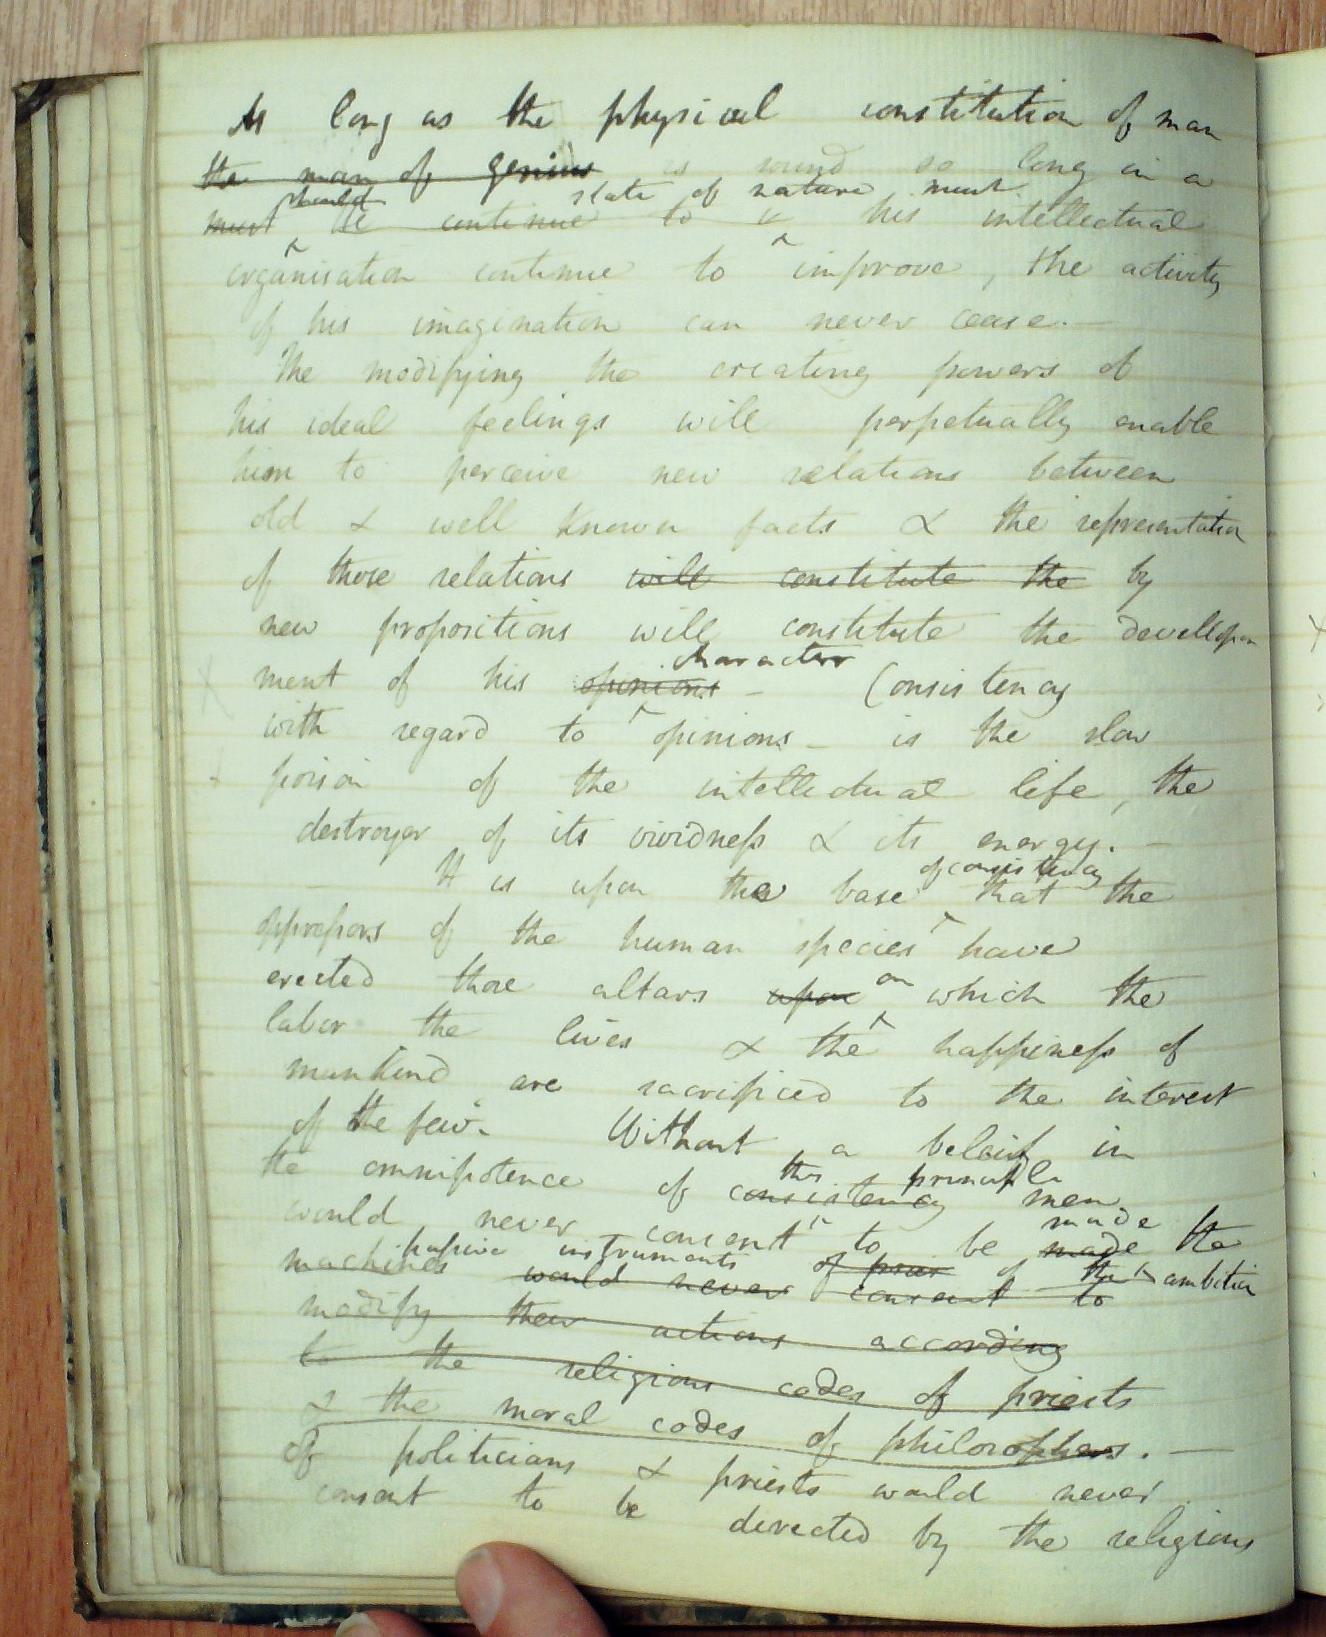 As long as the physical constitution of man
the man of genius is sound so long in a
should state of nature must
must be continue to & his intellectual
organisation continue to improve, the activity
of his imagination can never cease. —
The modifying the creating powers of
his ideal feelings will perpetually enable
him to perceive new relations between
old & well known facts & the representation
of those relations will constitute the by
new propositions will constitute the develop
character
ment of his opinions — Consistency
with regard to opinions — is the slow
poison of the intellectual life, the
destroyer of its vividness & its energy. —
of consistency
It is upon the base that the
oppressors of the human species have
on
erected those altars upon which the
labor the lives & the happiness of
mankind are sacrificed to the interest
of the few. Without a beleif in
this principle
the omnipotence of consistency men
would never consent to be made the
made
passive instruments of of the ambition
machines would never consent to
modify their actions according
to the religious codes of priests
& the moral codes of philosophers. —
of politicians & priests would never
consent to be directed by the religious